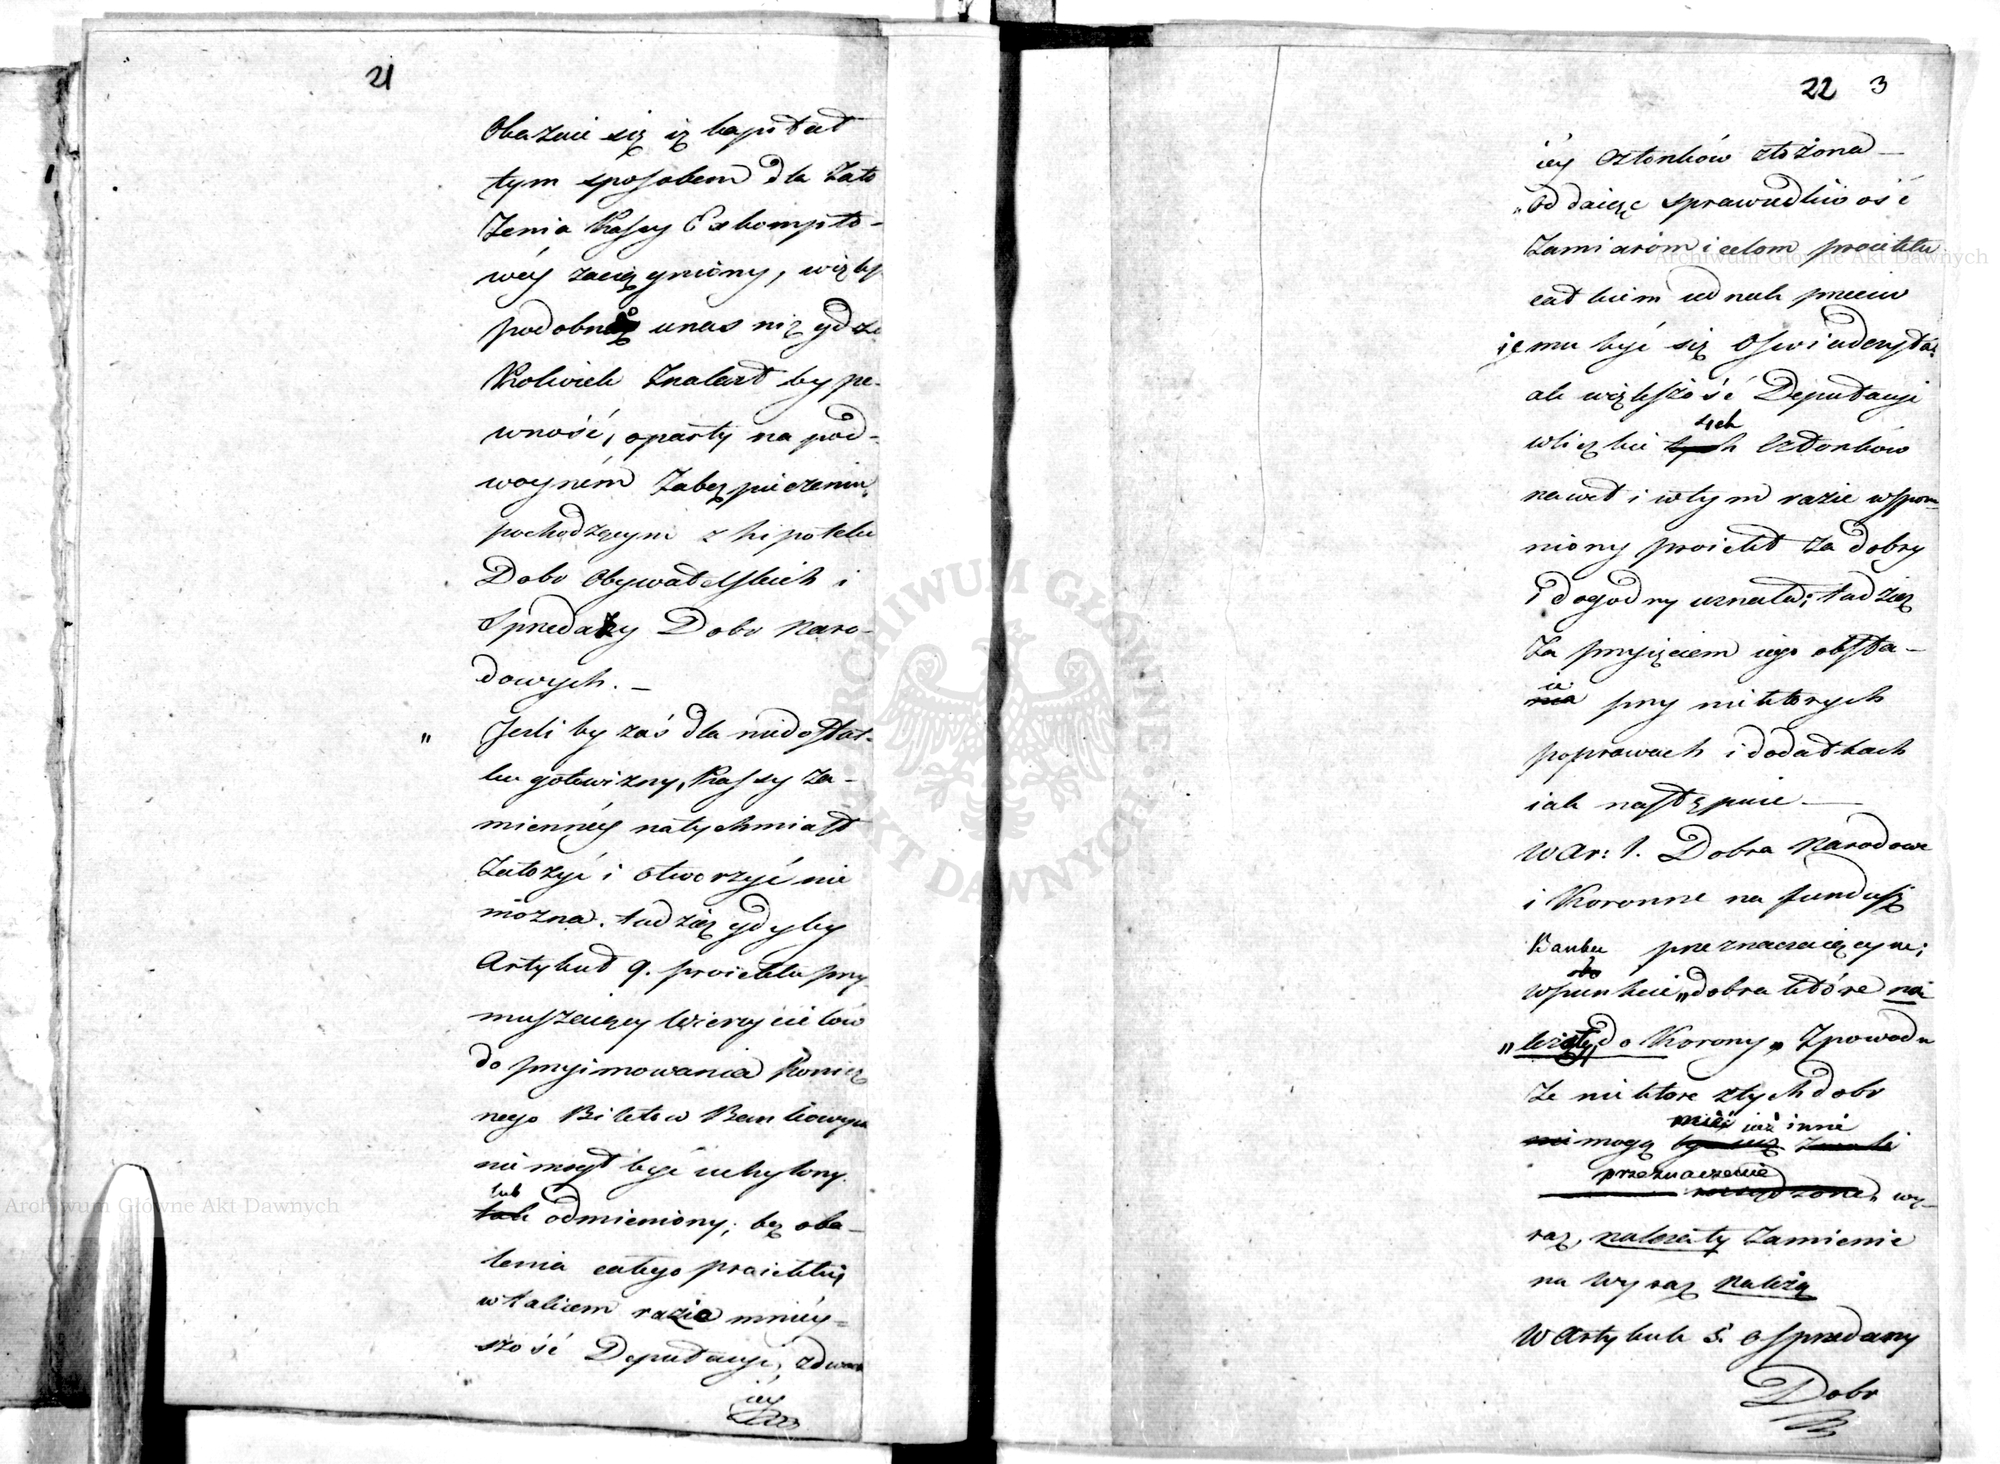 21
Okazuie się iż kapitał
tym sposobem dla Zało
Zenia Kassy Exkompto-
wéy zaciągniony, więks
podobno unas niż gdzie
Kolwiek Znalazł by pe-
wność, oparty na pod-
wóyném Zabezpieczeniu,
pochodzącym z hipoteki
Dobr Obywatelskich i
Sprzedaży Dobr Naro-
dowych. —
" Jesli by zaś dla niedostat-
ku gotowizny, Kassy Za-
miennéy natychmiast
Założyć i otworzyć nie
można. tudzież gdyby
Artykuł 9. proiektu przy
muszaiący Wierzycielów
do przyimowania koniecz
nego Biletow Bankowych
nie mogł być uchylony.
lub
tak odmieniony, bez oba-
lenia całego proiektu,
w takiem razie mniéy-
szość Deputacyi, z dwóch
iéy
22 3
iéy Członków złożona —
„oddaiąc sprawiedliwość
Zamiarom i celom proiektu
całkiem iednak przeciw
iemu być się Oświadczyła,
ale większość Deputacyi
sześć
wliczbie tych Członków
nawet i wtym razie wspom-
niony proiekt Za dobry
i dogodny uznała; tudzież
Za przyięciem iego obsta-
ie
nia przy niektorych
poprawach i dodatkach
iak następuie —
W Ar: 1. Dobra Narodowe
i Koronne na fundusz
Banku przeznaczaiącym;
wpunkcie „dobra które na
„leżały do Korony„ Zpowodu
Ze niektore ztych dobr
mieć iuż inne
nie mogą być iuż
przeznaczenie
wy-
raz, należały Zamienić
na wyraz należą
W Artykule 5. o sprzedaży
Dobr